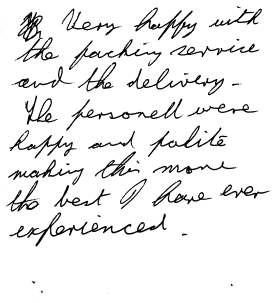 Very happy with
the packing service
and the delivery -
The personell were
happy and polite
making this move
the best I have ever
experienced.